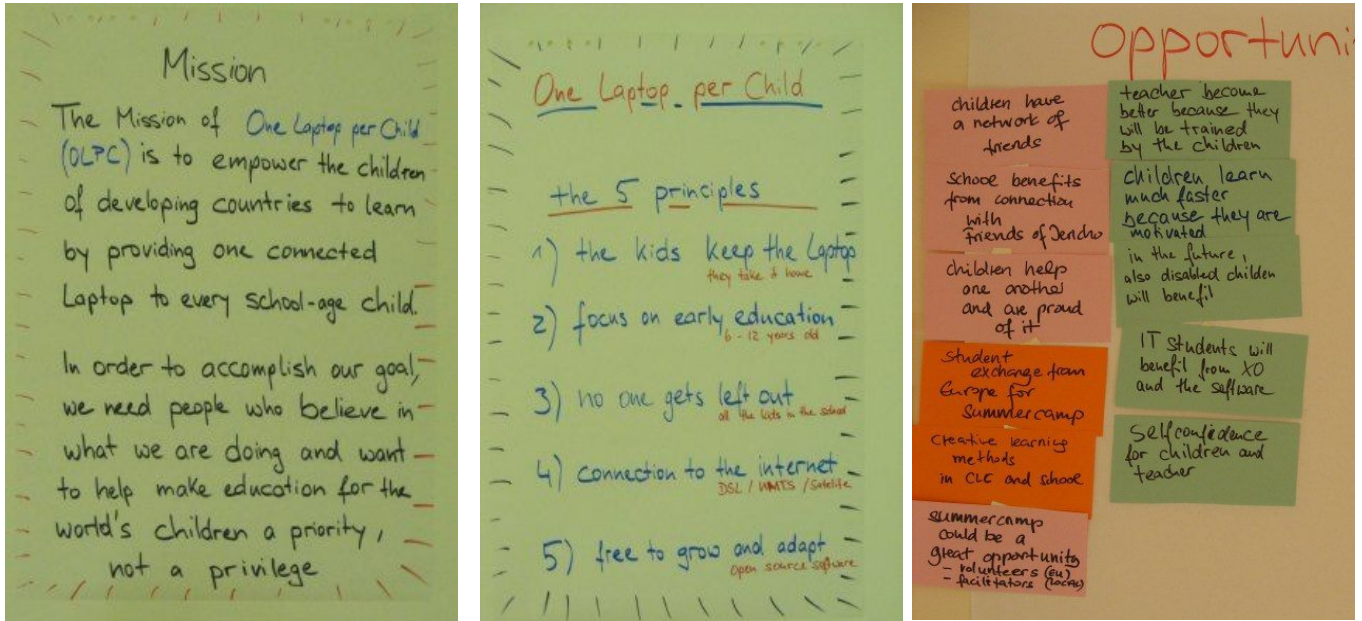 Mission
The Mission of One Laptop per Child
(OLPC) is to empower the children
of developing countries to learn
by providing one connected
Laptop to every school-age child.
In order to accomplish our goal,
we need people who believe in
what we are doing and want
to help make education for the
world's children a priority,
not a privilege
One Laptop per Child
the 5 principles
1) the kids keep the Laptop
they take it home
2) focus on early education
6-12 years old
3) no one gets left out
all the kids in the school
4) connection to the internet
DSL / UMTS / Satelite
5) free to grow and adapt
open source software
Opportuni
children have
a network of
friends
school benefits
from connection
with
friends of Jericho
children help
one another
and are proud
of it
Student
exchange from
Europe for
Summercamp
creative learning
methods
in CLC and school
summercamp
could be a
great opportunity
- volunteers (EU)
- facilitators (LOCAL)
teacher become
better because they
will be trained
by the children
children learn
much faster
because they are
motivated
in the future,
also disabled children
will benefit
IT students will
benefit from XO
and the software
Selfconfidence
for children and
teacher